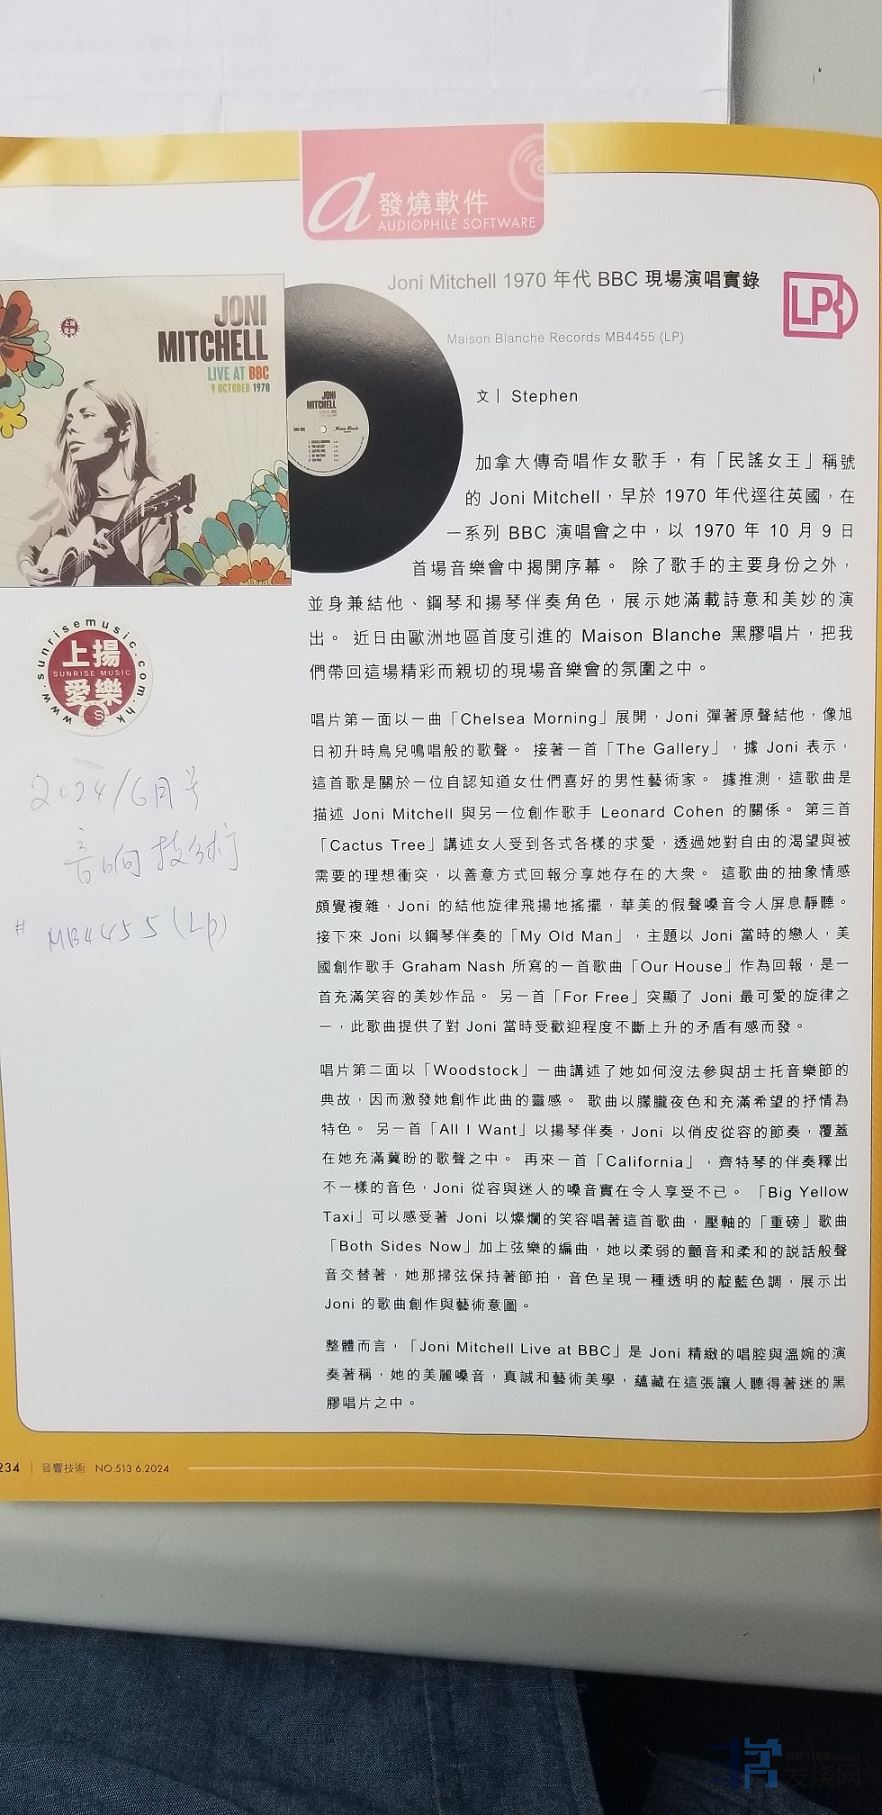 a 發燒軟件
AUDIOPHILE SOFTWARE
JONI
MITCHELL
LIVE AT BBC
9 OCTOBER 1970
JONI
MITCHELL
Joni Mitchell 1970 年代 BBC 現場演唱實錄
LP
Maison Blanche Records MB4455 (LP)
文｜ Stephen
加拿大傳奇唱作女歌手，有「民謠女王」稱號
的 Joni Mitchell，早於 1970 年代逕往英國，在
一系列 BBC 演唱會之中，以 1970 年 10 月 9 日
首場音樂會中揭開序幕。 除了歌手的主要身份之外，
並身兼結他、鋼琴和揚琴伴奏角色，展示她滿載詩意和美妙的演
出。 近日由歐洲地區首度引進的 Maison Blanche 黑膠唱片，把我
們帶回這場精彩而親切的現場音樂會的氛圍之中。
唱片第一面以一曲「Chelsea Morning」展開，Joni 彈著原聲結他，像旭
日初升時鳥兒鳴唱般的歌聲。 接著一首「The Gallery」，據 Joni 表示，
這首歌是關於一位自認知道女仕們喜好的男性藝術家。 據推測，這歌曲是
描述 Joni Mitchell 與另一位創作歌手 Leonard Cohen 的關係。 第三首
「Cactus Tree」講述女人受到各式各樣的求愛，透過她對自由的渴望與被
需要的理想衝突，以善意方式回報分享她存在的大衆。 這歌曲的抽象情感
頗覺複雜，Joni 的結他旋律飛揚地搖擺，華美的假聲嗓音令人屏息靜聽。
接下來 Joni 以鋼琴伴奏的「My Old Man」，主題以 Joni 當時的戀人，美
國創作歌手 Graham Nash 所寫的一首歌曲「Our House」作為回報，是一
首充滿笑容的美妙作品。 另一首「For Free」突顯了 Joni 最可愛的旋律之
一，此歌曲提供了對 Joni 當時受歡迎程度不斷上升的矛盾有感而發。
唱片第二面以「Woodstock」一曲講述了她如何沒法參與胡士托音樂節的
典故，因而激發她創作此曲的靈感。 歌曲以朦朧夜色和充滿希望的抒情為
特色。 另一首「All I Want」以揚琴伴奏，Joni 以俏皮從容的節奏，覆蓋
在她充滿冀盼的歌聲之中。 再來一首「California」，齊特琴的伴奏釋出
不一樣的音色，Joni 從容與迷人的嗓音實在令人享受不已。 「Big Yellow
Taxi」可以感受著 Joni 以燦爛的笑容唱著這首歌曲，壓軸的「重磅」歌曲
「Both Sides Now」加上弦樂的編曲，她以柔弱的顫音和柔和的說話般聲
音交替著，她那掃弦保持著節拍，音色呈現一種透明的靛藍色調，展示出
Joni 的歌曲創作與藝術意圖。
整體而言，「Joni Mitchell Live at BBC」是 Joni 精緻的唱腔與溫婉的演
奏著稱，她的美麗嗓音，真誠和藝術美學，蘊藏在這張讓人聽得著迷的黑
膠唱片之中。
www.sunrisemusic.com.hk
上揚
SUNRISE MUSIC
愛樂
2024/6月号
音响技術
# MB4455 (LP)
234 ｜ 音響技術 NO.513 6.2024
HIFI168.com
发烧网